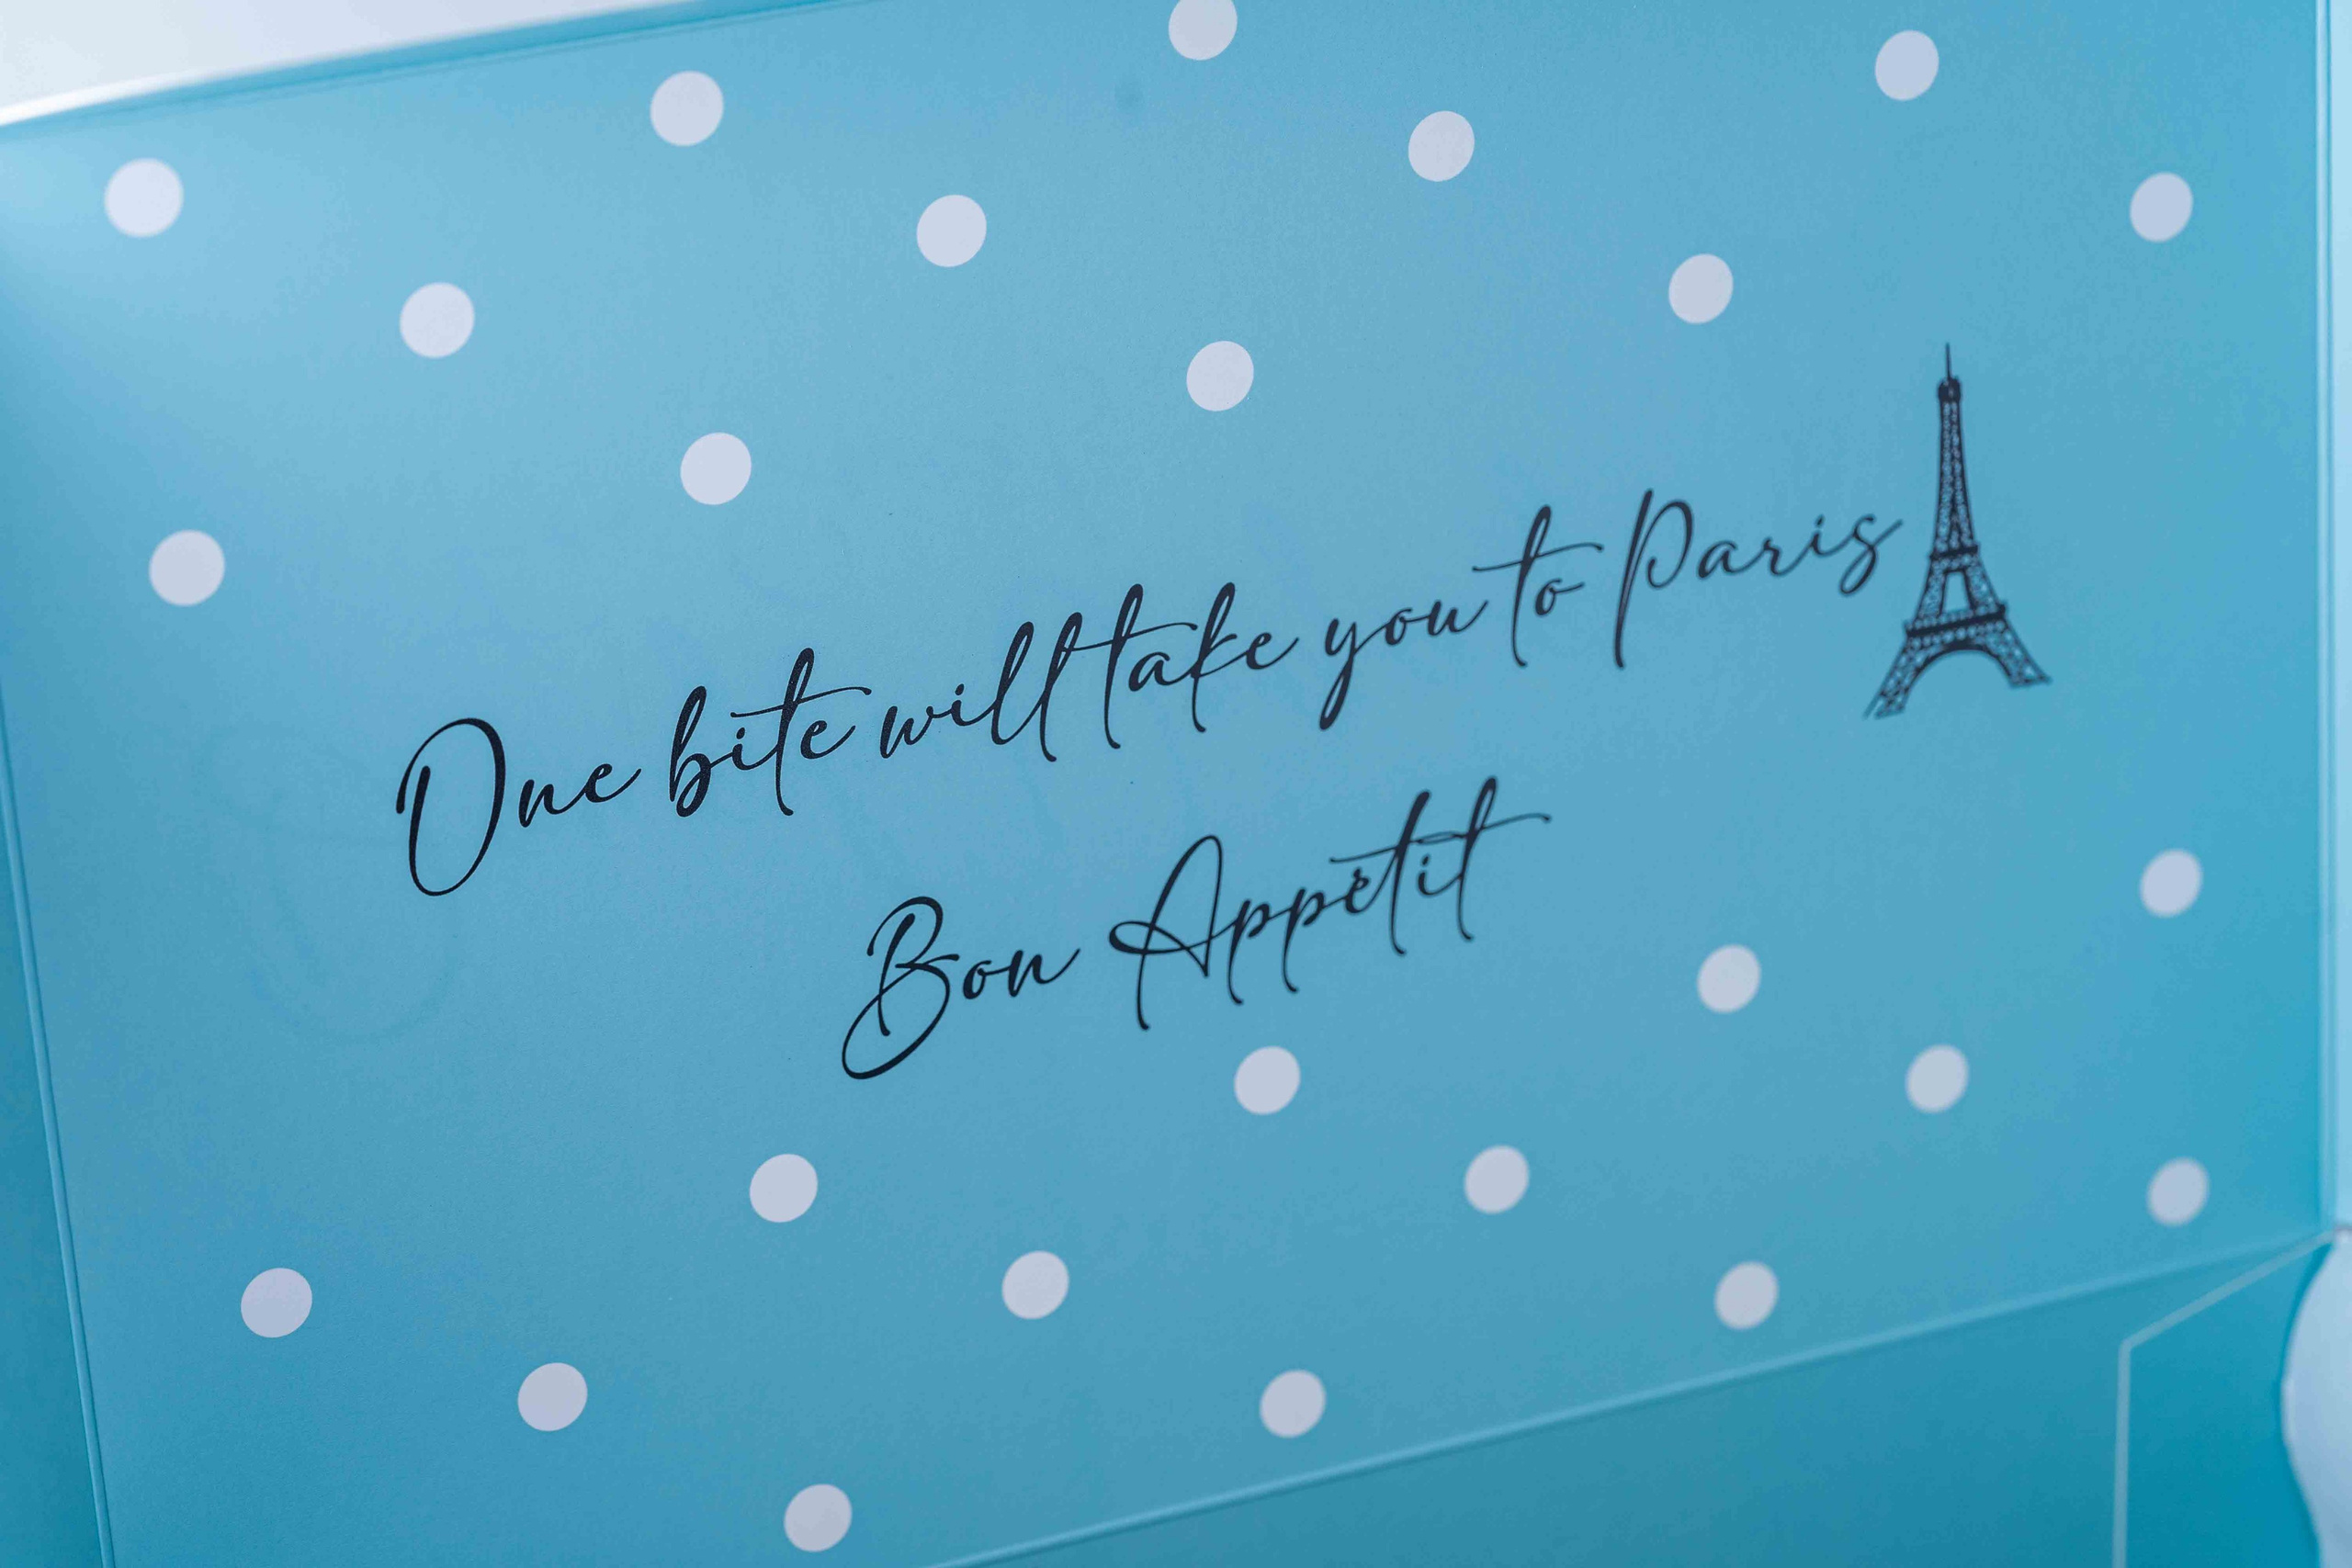 One bite will take you to Paris
Bon Appétit